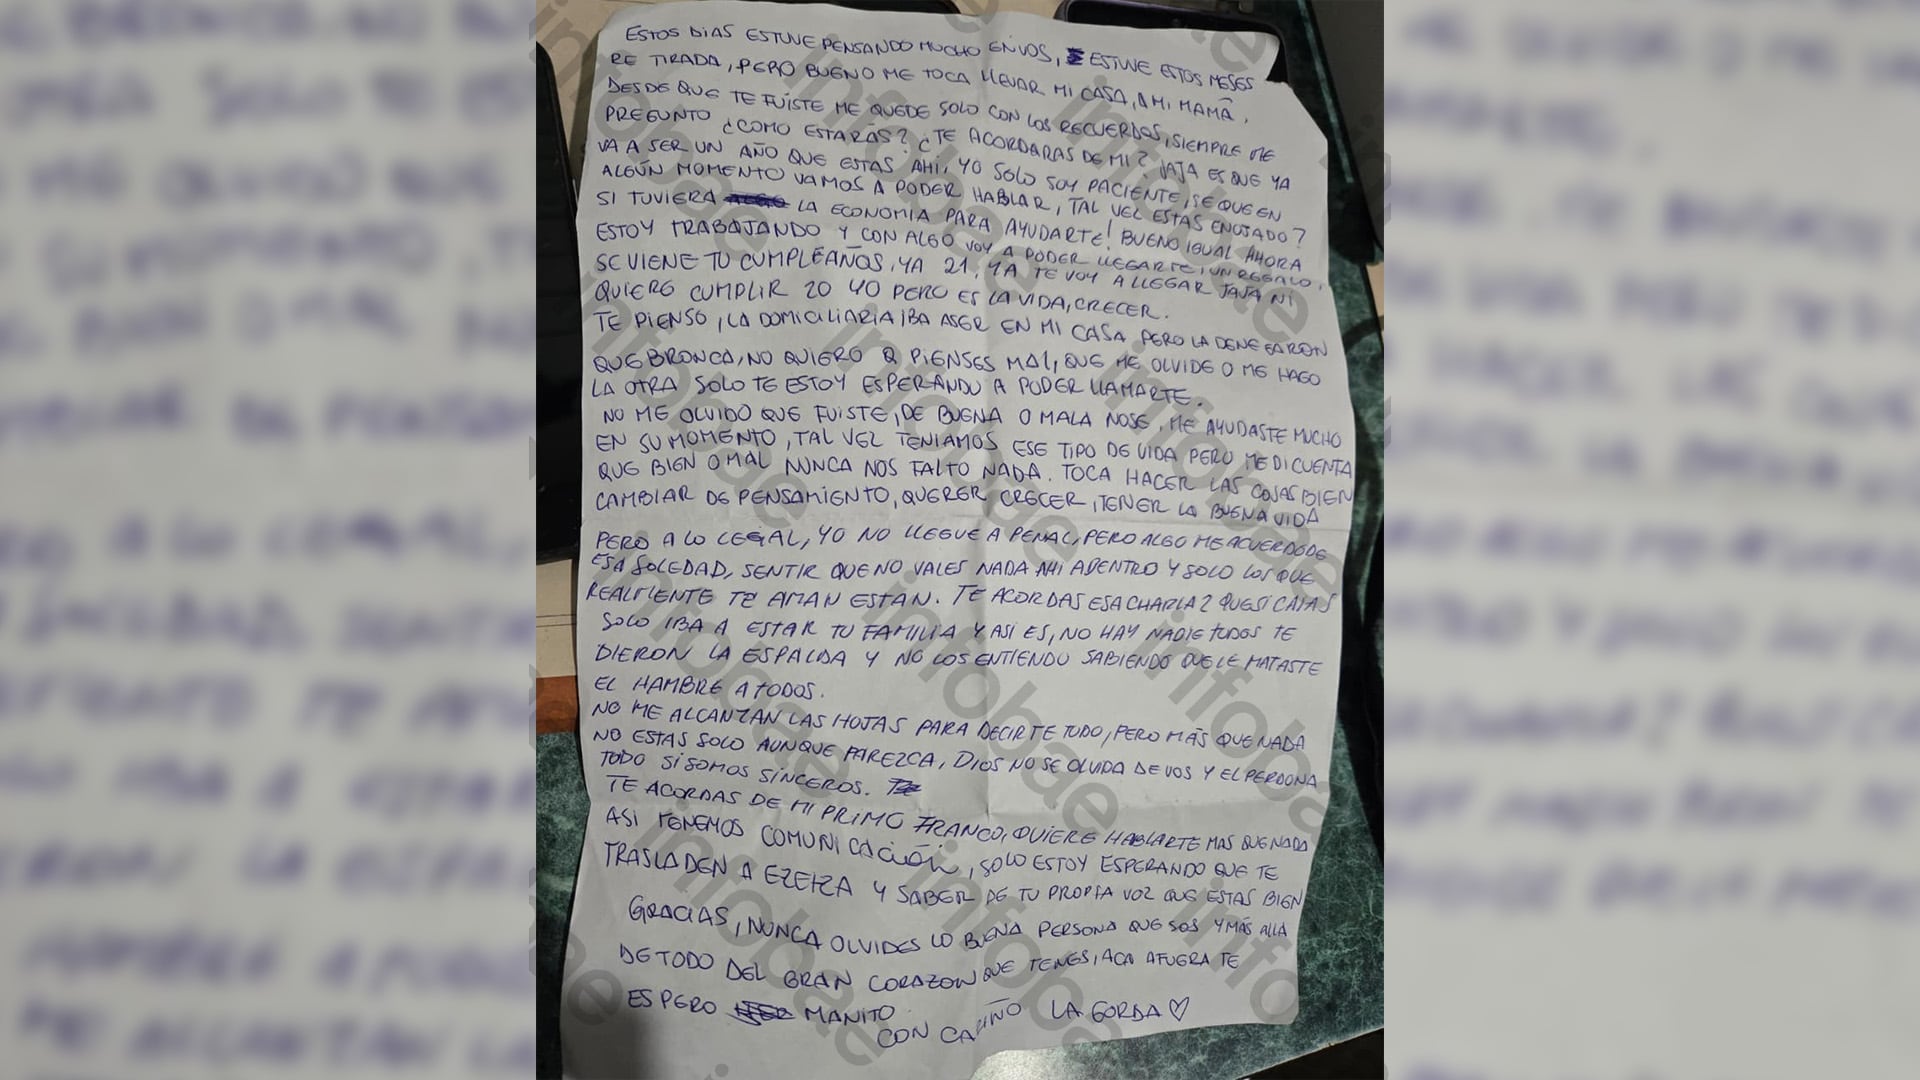 ESTOS DIAS ESTUVE PENSANDO MUCHO EN VOS, ESTUVE ESTOS MESES
RE TIRADA, PERO BUENO ME TOCA LLEVAR MI CASA, A MI MAMÁ,
DESDE QUE TE FUISTE ME QUEDE SOLO CON LOS RECUERDOS, SIEMPRE ME
PREGUNTO ¿COMO ESTARÁS? ¿TE ACORDARAS DE MI? JAJA ES QUE YA
VA A SER UN AÑO QUE ESTAS AHI, YO SOLO SOY PACIENTE, SE QUE EN
ALGÚN MOMENTO VAMOS A PODER HABLAR, TAL VEZ ESTAS ENOJADO?
SI TUVIERA LA ECONOMIA PARA AYUDARTE! BUENO IGUAL AHORA
ESTOY TRABAJANDO Y CON ALGO VOY A PODER LLEGARTE, UN REGALO,
SE VIENE TU CUMPLEAÑOS, YA 21, YA TE VOY A LLEGAR JAJA NI
QUIERO CUMPLIR 20 YO PERO ES LA VIDA, CRECER.
TE PIENSO, LA DOMICILIARIA IBA ASER EN MI CASA PERO LA DENEGARON
QUE BRONCA, NO QUIERO Q PIENSES MAL, QUE ME OLVIDE O ME HAGO
LA OTRA SOLO TE ESTOY ESPERANDO A PODER LLAMARTE.
NO ME OLVIDO QUE FUISTE, DE BUENA O MALA NOSE, ME AYUDASTE MUCHO
EN SU MOMENTO, TAL VEZ TENIAMOS ESE TIPO DE VIDA PERO ME DI CUENTA
QUE BIEN O MAL NUNCA NOS FALTO NADA. TOCA HACER LAS COSAS BIEN
CAMBIAR DE PENSAMIENTO, QUERER CRECER, TENER LA BUENA VIDA
PERO A LO LEGAL, YO NO LLEGUE A PENAL, PERO ALGO ME ACUERDO DE
ESA SOLEDAD, SENTIR QUE NO VALES NADA AHI ADENTRO Y SOLO LOS QUE
REALMENTE TE AMAN ESTÁN. TE ACORDAS ESA CHARLA? QUE SI CAIAS
SOLO IBA A ESTAR TU FAMILIA Y ASI ES, NO HAY NADIE TODOS TE
DIERON LA ESPALDA Y NO LOS ENTIENDO SABIENDO QUE LE MATASTE
EL HAMBRE A TODOS.
NO ME ALCANZAN LAS HOJAS PARA DECIRTE TODO, PERO MÁS QUE NADA
NO ESTAS SOLO AUNQUE PAREZCA, DIOS NO SE OLVIDA DE VOS Y EL PERDONA
TODO SI SOMOS SINCEROS.
TE ACORDAS DE MI PRIMO FRANCO, QUIERE HABLARTE MAS QUE NADA
ASI TENEMOS COMUNICACIÓN, SOLO ESTOY ESPERANDO QUE TE
TRASLADEN A EZEIZA Y SABER DE TU PROPIA VOZ QUE ESTAS BIEN
GRACIAS, NUNCA OLVIDES LO BUENA PERSONA QUE SOS Y MÁS ALLA
DE TODO DEL GRAN CORAZON QUE TENES, ACA AFUERA TE
ESPERO MANITO
CON CARIÑO LA GORDA
infobae